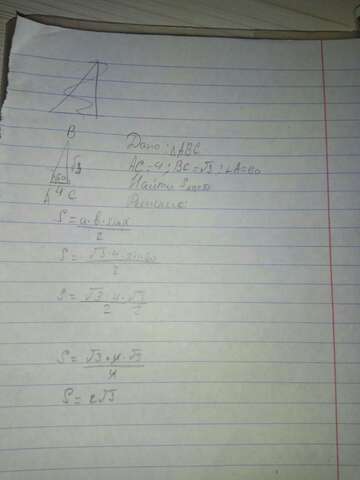 B
Дано: △ABC
√3
AC = 4; BC = √3; ∠A = 60
60
Найти S
4
A C
Решение
S = a · b · sin α / 2
S = √3 · 4 · sin 60 / 2
S = √3 · 4 / 2 · √3 / 2
S = √3 · 4 · √3 / 4
S = 2√3